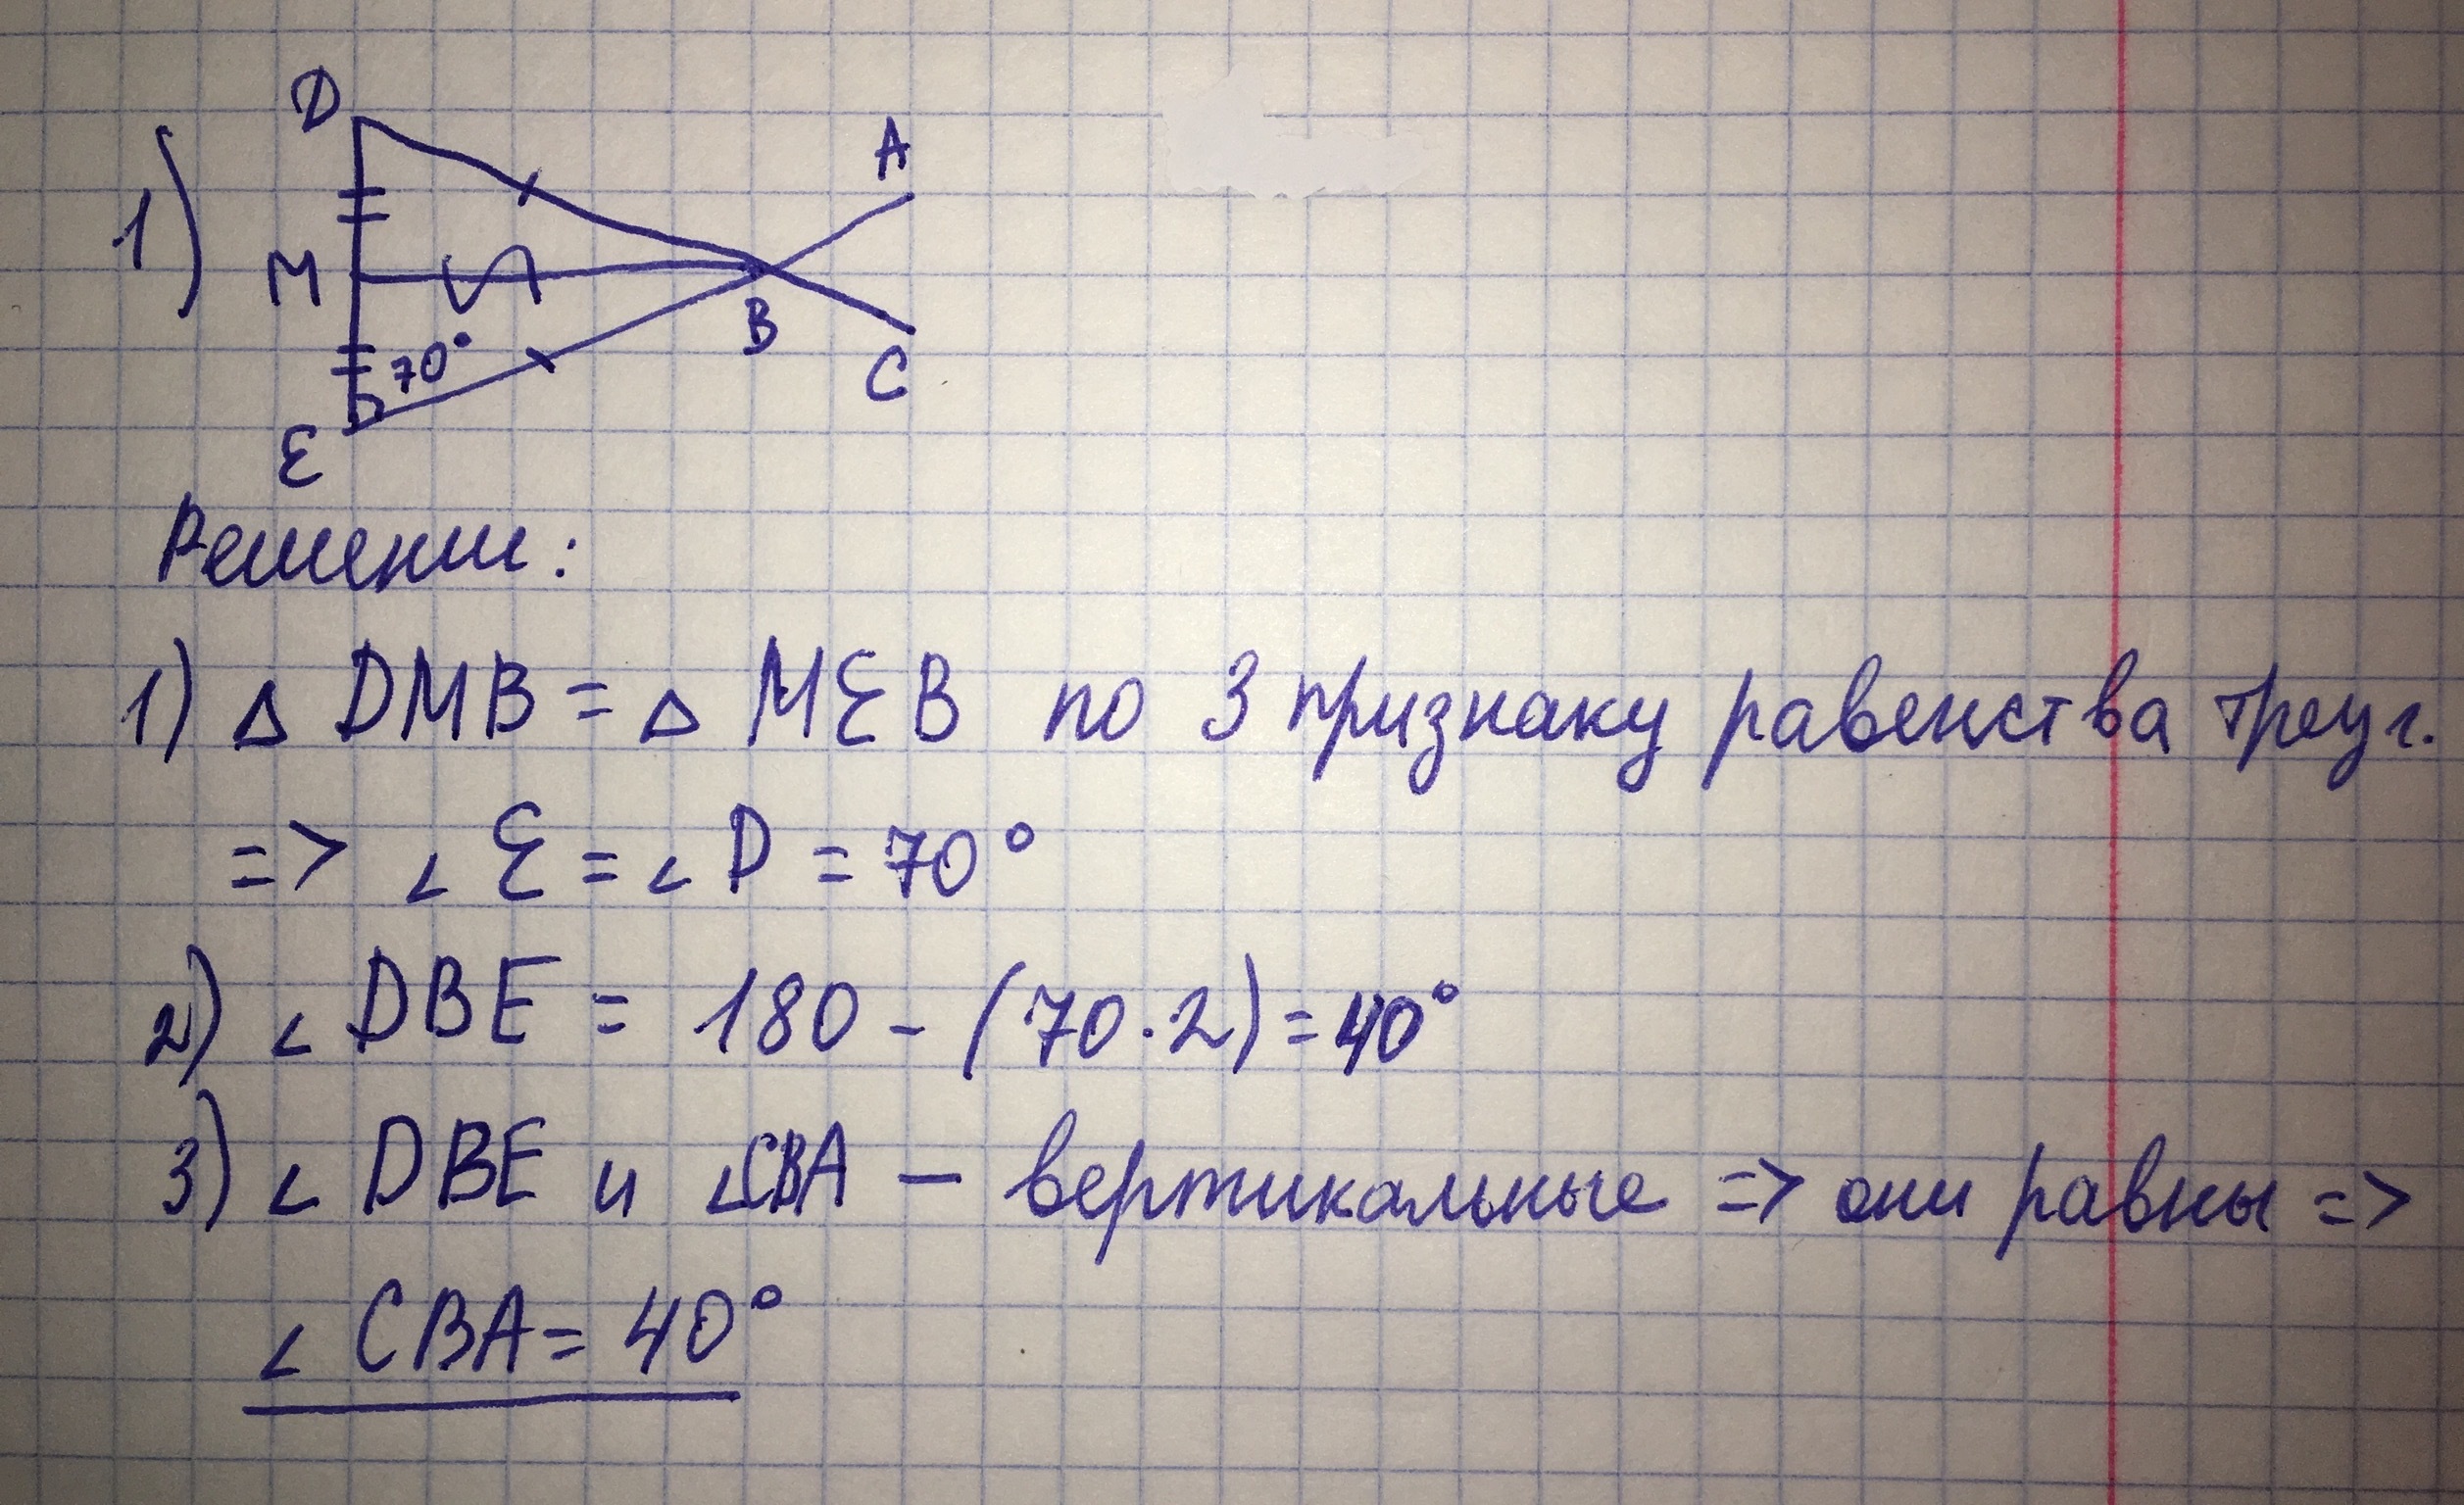 1)
D
A
M
B
70°
C
E
Решение:
1) △ DMB = △ MEB по 3 признаку равенства треуг.
=> ∠ E = ∠ D = 70°
2) ∠ DBE = 180 - (70·2) = 40°
3) ∠ DBE и ∠CBA — вертикальные => они равны =>
∠ CBA = 40°